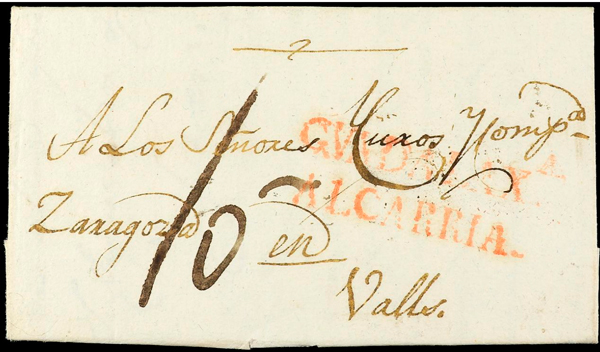 A Los Señores Yuros Y Comp.a
GUADALAX.A
ALCARRIA.
Zaragoza en
10
Valls.